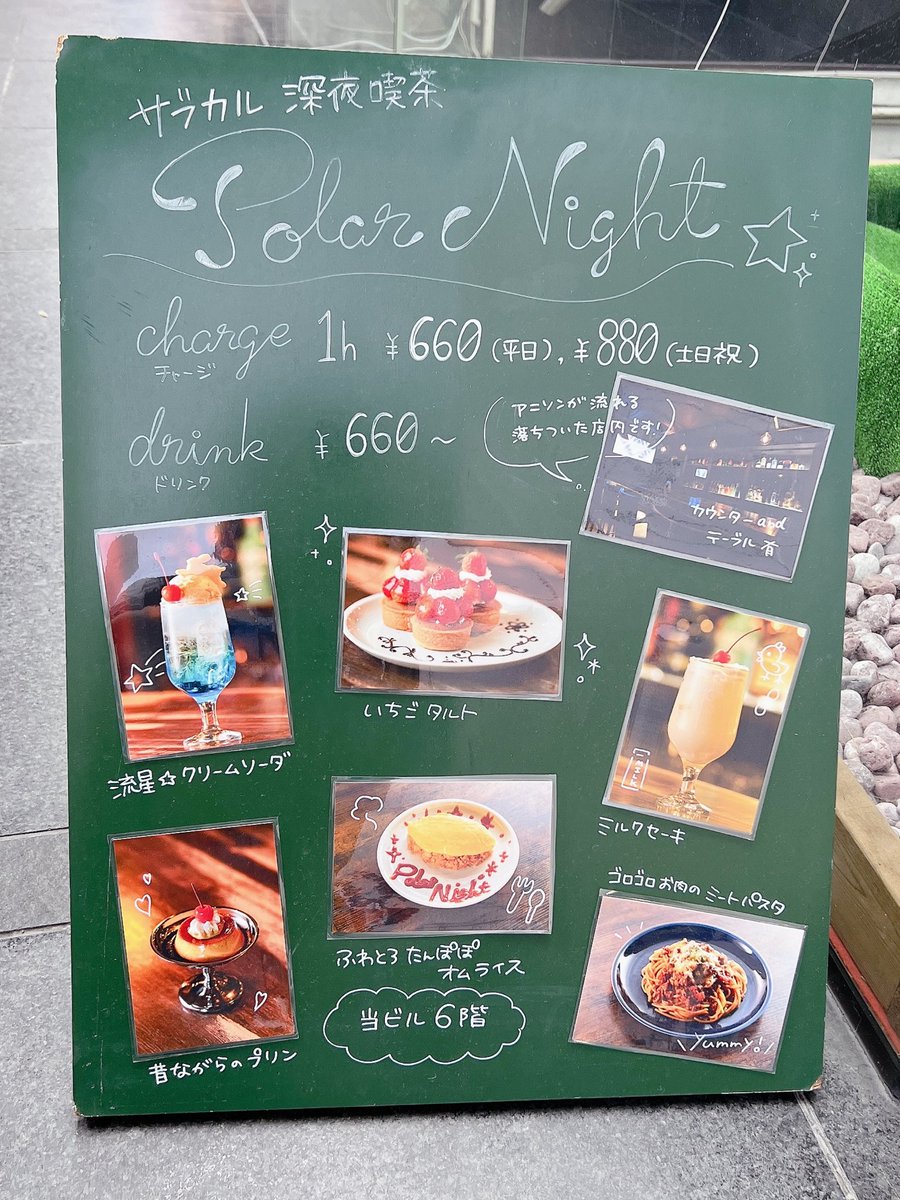 ザラカル 深夜喫茶
Polar Night
charge 1h ¥660(平日), ¥880(土日祝)
チャージ
drink ¥660~
ドリンク
アニソンが流れる
落ちついた店内です!
カウンターand
テーブル有
いちごタルト
流星☆クリームソーダ
MILK
ミルクセーキ
Polar Night
ふわとろ たんぽぽ
オムライス
ゴロゴロお肉のミートパスタ
Yummy!
昔ながらのプリン
当ビル6階